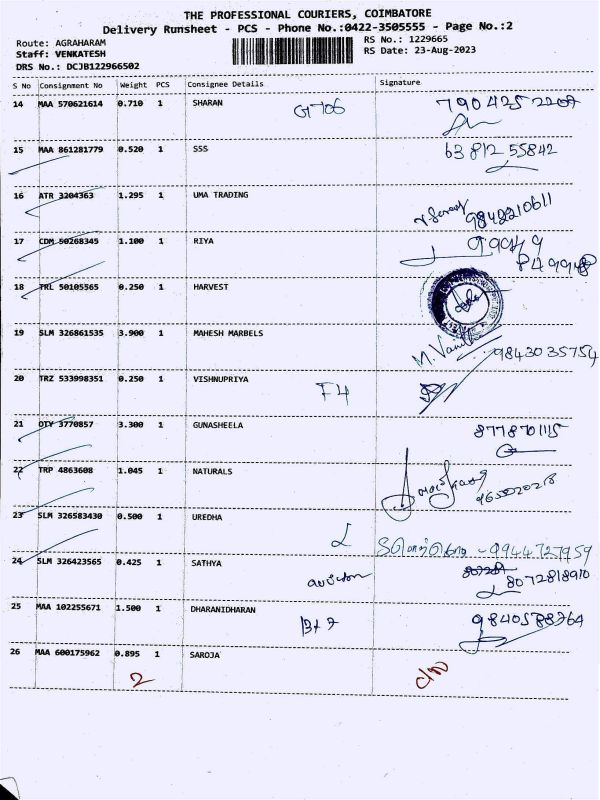 THE PROFESSIONAL COURIERS, COIMBATORE
Delivery Runsheet - PCS - Phone No.:0422-3505555 - Page No.:2
Route: AGRAHARAM RS No.: 1229665
Staff: VENKATESH RS Date: 23-Aug-2023
DRS No.: DCJB122966502
S No Consignment No Weight PCS Consignee Details Signature
14 MAA 570621614 0.710 1 SHARAN G706
15 MAA 861281779 0.520 1 SSS 63812 55842
16 ATR 3204363 1.295 1 UMA TRADING 9842210611
17 CDM 50268345 1.100 1 RIYA
18 TRL 50105565 0.250 1 HARVEST
19 SLM 326861535 3.900 1 MAHESH MARBELS 9843035754
20 TRZ 533998351 0.250 1 VISHNUPRIYA F4
21 OTY 3770857 3.300 1 GUNASHEELA 8778701115
22 TRP 4863608 1.045 1 NATURALS
23 SLM 326583430 0.500 1 UREDHA 9944727959
24 SLM 326423565 0.425 1 SATHYA 8072818910
25 MAA 102255671 1.500 1 DHARANIDHARAN 9840588764
26 MAA 600175962 0.895 1 SAROJA
2